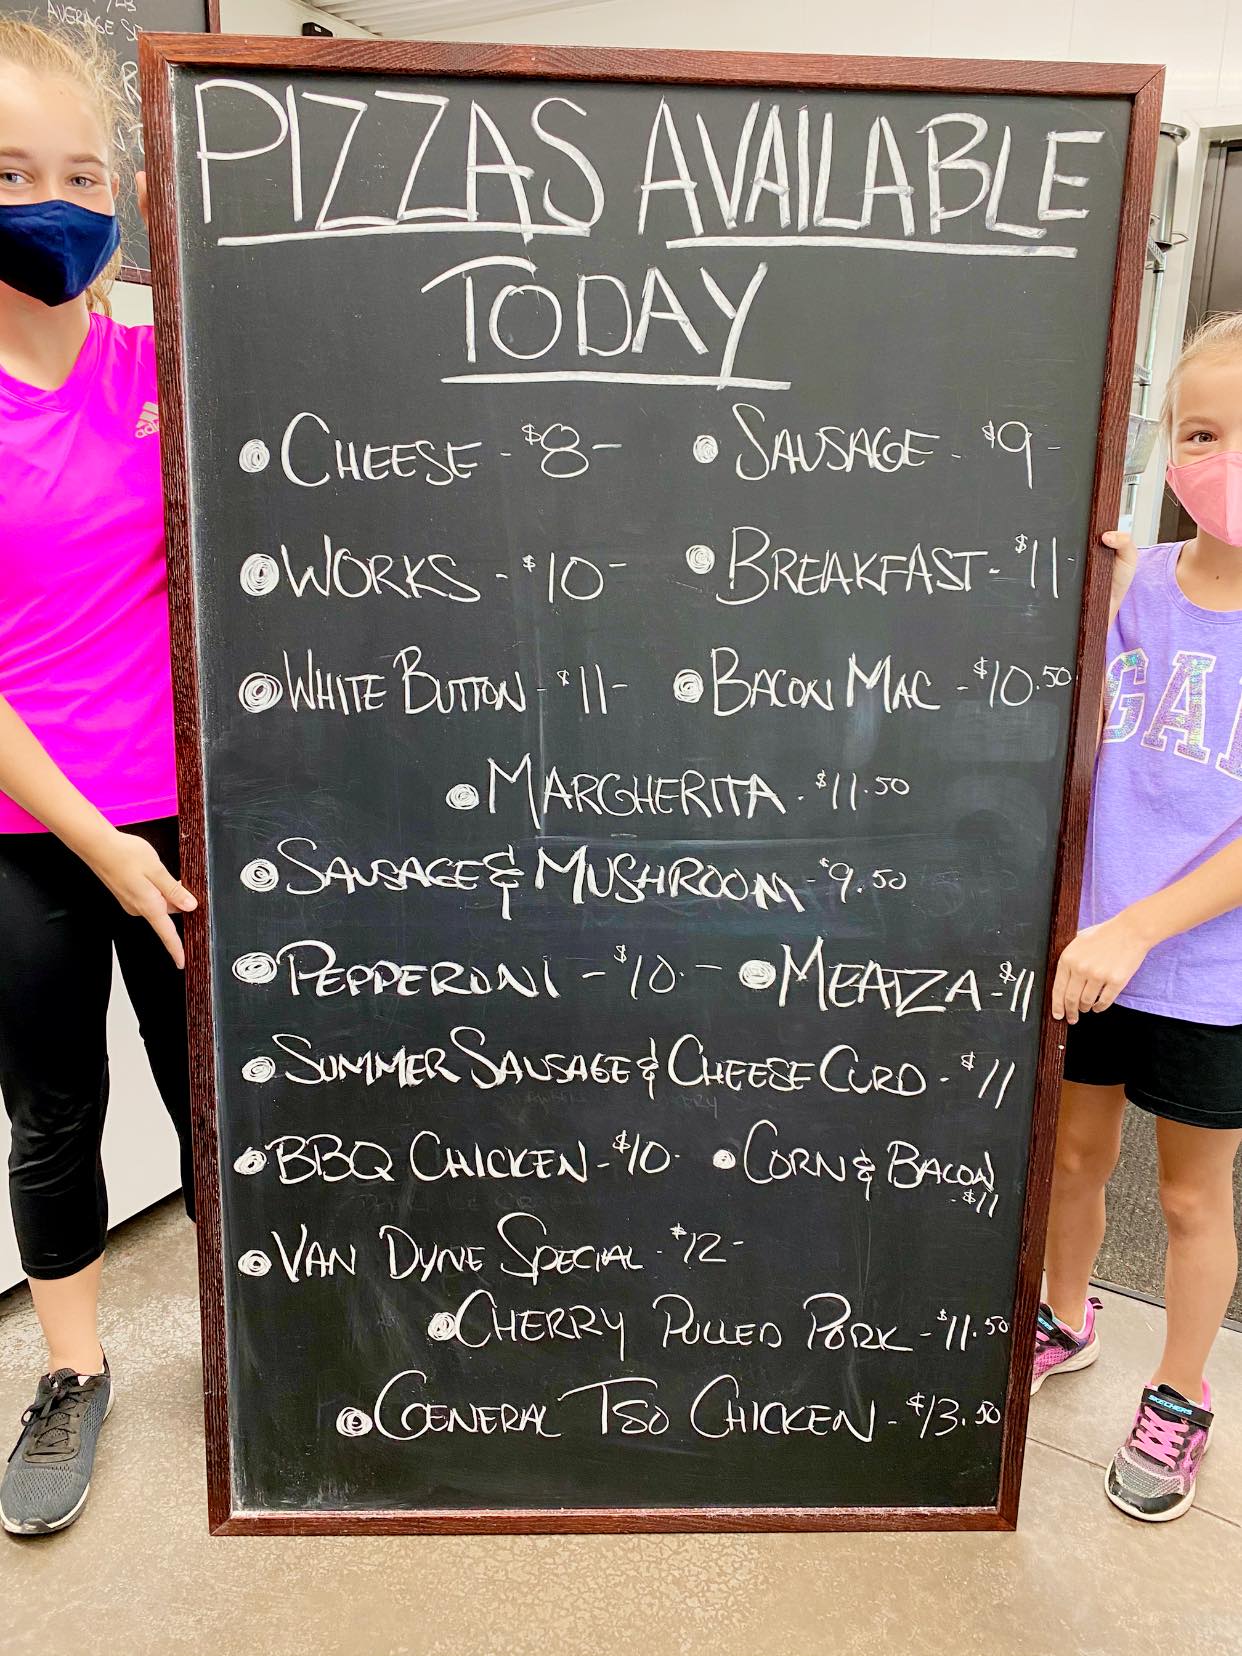 AVERAGE
PIZZAS AVAILABLE
TODAY
CHEESE - $8-
SAUSAGE - $9-
WORKS - $10-
BREAKFAST - $11-
WHITE BUTTON - $11-
BACON MAC - $10.50
MARGHERITA - $11.50
SAUSAGE & MUSHROOM - $9.50
PEPPERONI - $10.-
MEATZA - $11
SUMMER SAUSAGE & CHEESE CURD - $11
BBQ CHICKEN - $10-
CORN & BACON
- $11
VAN DYNE SPECIAL - $12-
CHERRY PULLED PORK - $11.50
GENERAL TSO CHICKEN - $13.50
GA
SKECHERS